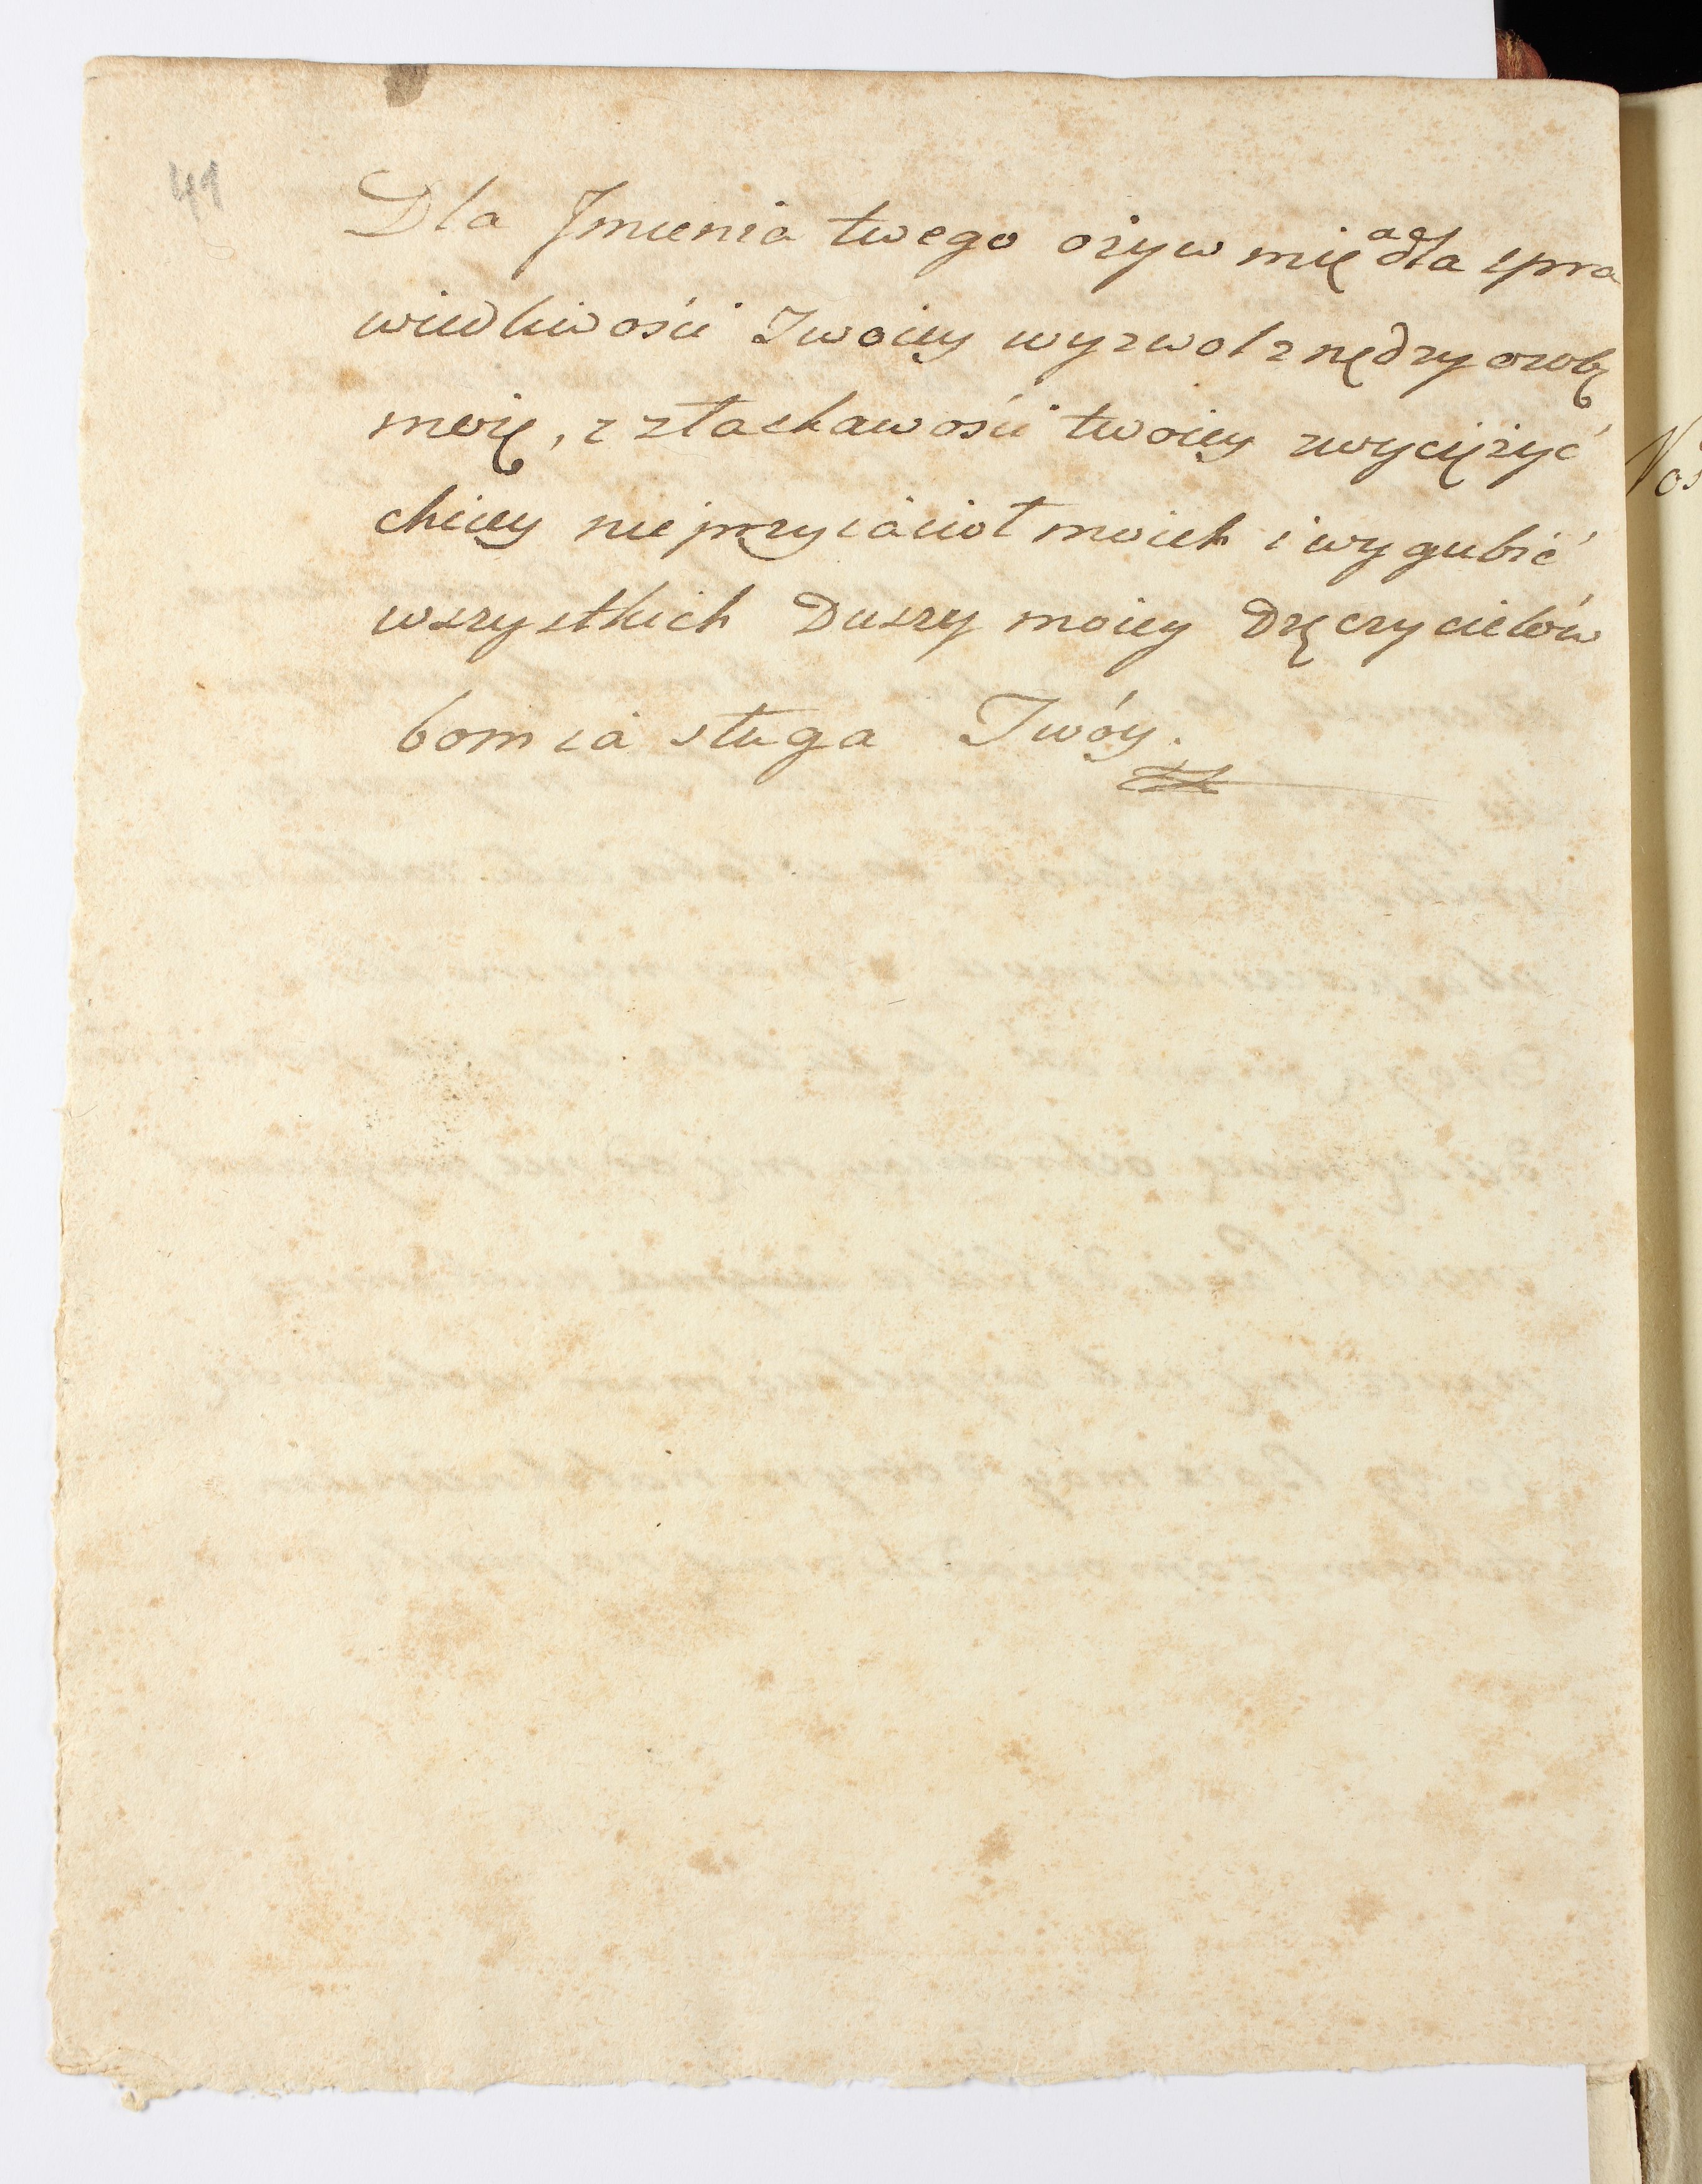 41
Dla Jmienia twego ożyw mię a dla spra
wiedliwości Twoiey wyzwol z nędzy osobę
moię, z złaskawości twoiey zwyciężyć
chciey nieprzyiaciół moich i wygubić
wszystkich Duszy moiey Dręczycielów
bom ia sługa Twóy.